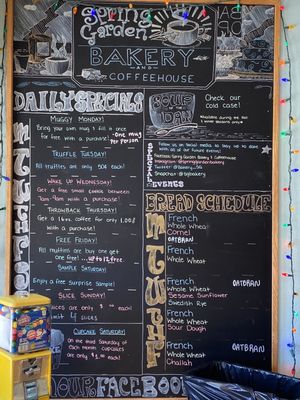 Spring
Garden
BAKERY
AND
COFFEEHOUSE
DAILY SPECIALS
MUGGY MONDAY!
Bring your own mug & fill it once
for free with a purchase!
one mug
Per Person
TRUFFLE TUESDAY!
All truffles are only 50¢ each!
WAKE UP WEDNESDAY!
Get a free small coffee between
7am-9am with a purchase!
THROWBACK THURSDAY!
Get a 16oz coffee for only 1.00$
with a purchase!
FREE FRIDAY!
All muffins are buy one get
one free! ...up to 12 free
SAMPLE SATURDAY
Enjoy a free surprise sample!
SLICE SUNDAY!
CUPCAKE SATURDAY!
On the third Saturday of
each month cupcakes
are only $1.00 each!
SOUP
OF THE
DAY
Check our
cold case!
Follow us on social media to stay up to date
with all of our future events!
Facebook: Spring Garden Bakery & Coffeehouse
Instagram: @springgardenbakery
Twitter: @bakery_SG
EVENTS
BREAD SCHEDULE
French
Whole Wheat
OATBRAN
French
Whole Wheat
French OATBRAN
Whole Wheat
Sesame Sunflower
Swedish Rye
French
Whole Wheat
Sour Dough
French OATBRAN
Whole Wheat
Challah
OUR FACEBOO